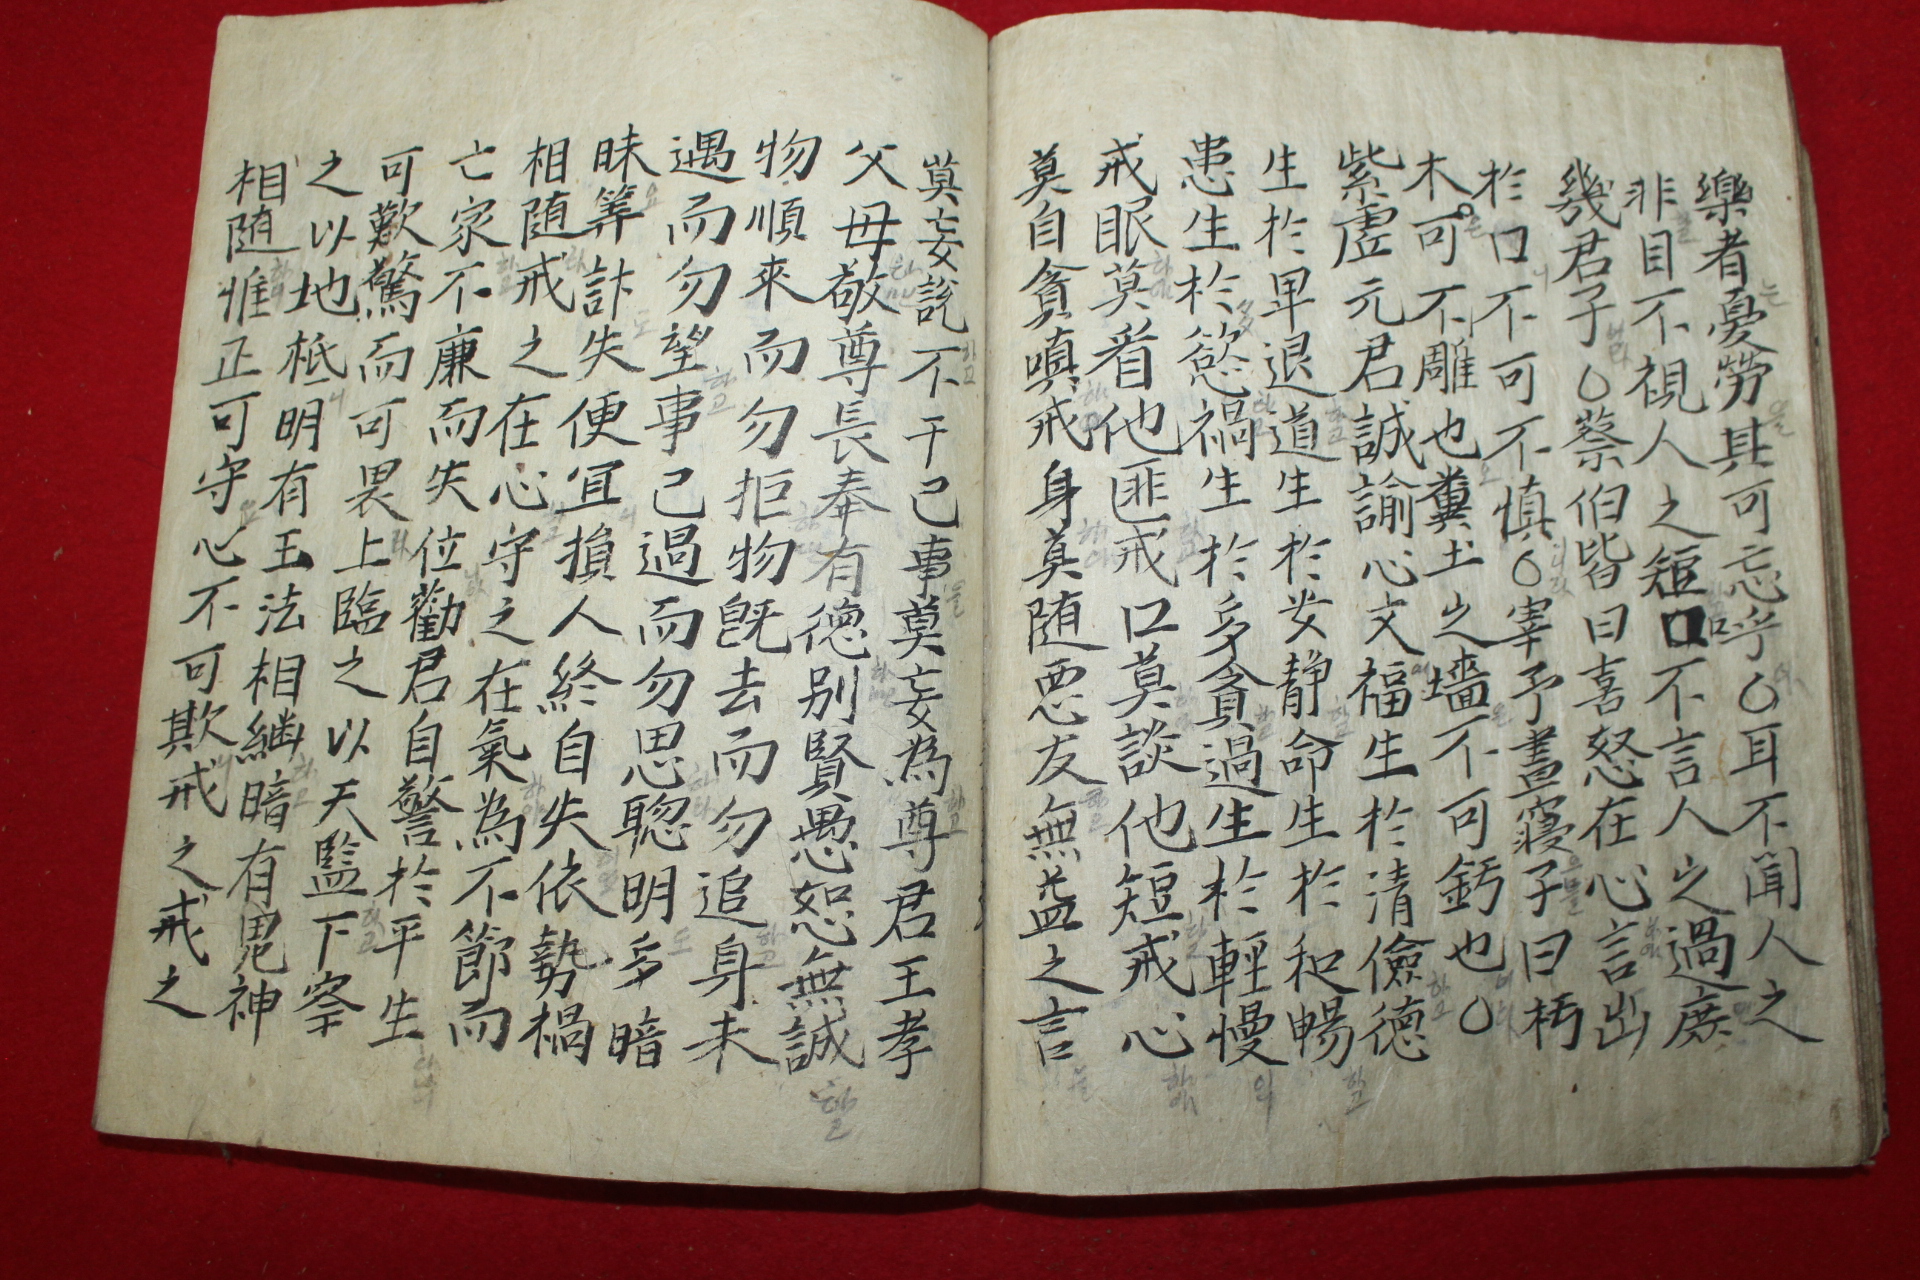 樂者憂勞其可忘乎○耳不聞人之
非目不視人之短口不言人之過庶
幾君子○蔡伯皆曰喜怒在心言出
於口不可不慎○宰予晝寢子曰朽
木可不雕也糞土之墻不可釫也○
紫虛元君誠諭心文福生於清儉德
生於卑退道生於安静命生於和暢
患生於慾禍生於多貪過生於輕慢
戒眼莫看他匪戒口莫談他短戒心
莫自貪嗔戒身莫随悪友無益之言
莫妄說不干己事莫妄為尊君王孝
父母敬尊長奉有德別賢愚恕無誠
物順來而勿拒物旣去而勿追身未
遇而勿望事已過而勿思聦明多暗
昧筭計失便宜損人終自失依勢禍
相随戒之在心守之在氣為不節而
亡家不廉而失位勸君自警於平生
可歎驚而可畏上臨之以天監下察
之以地祇明有王法相継暗有鬼神
相随惟正可守心不可欺戒之戒之